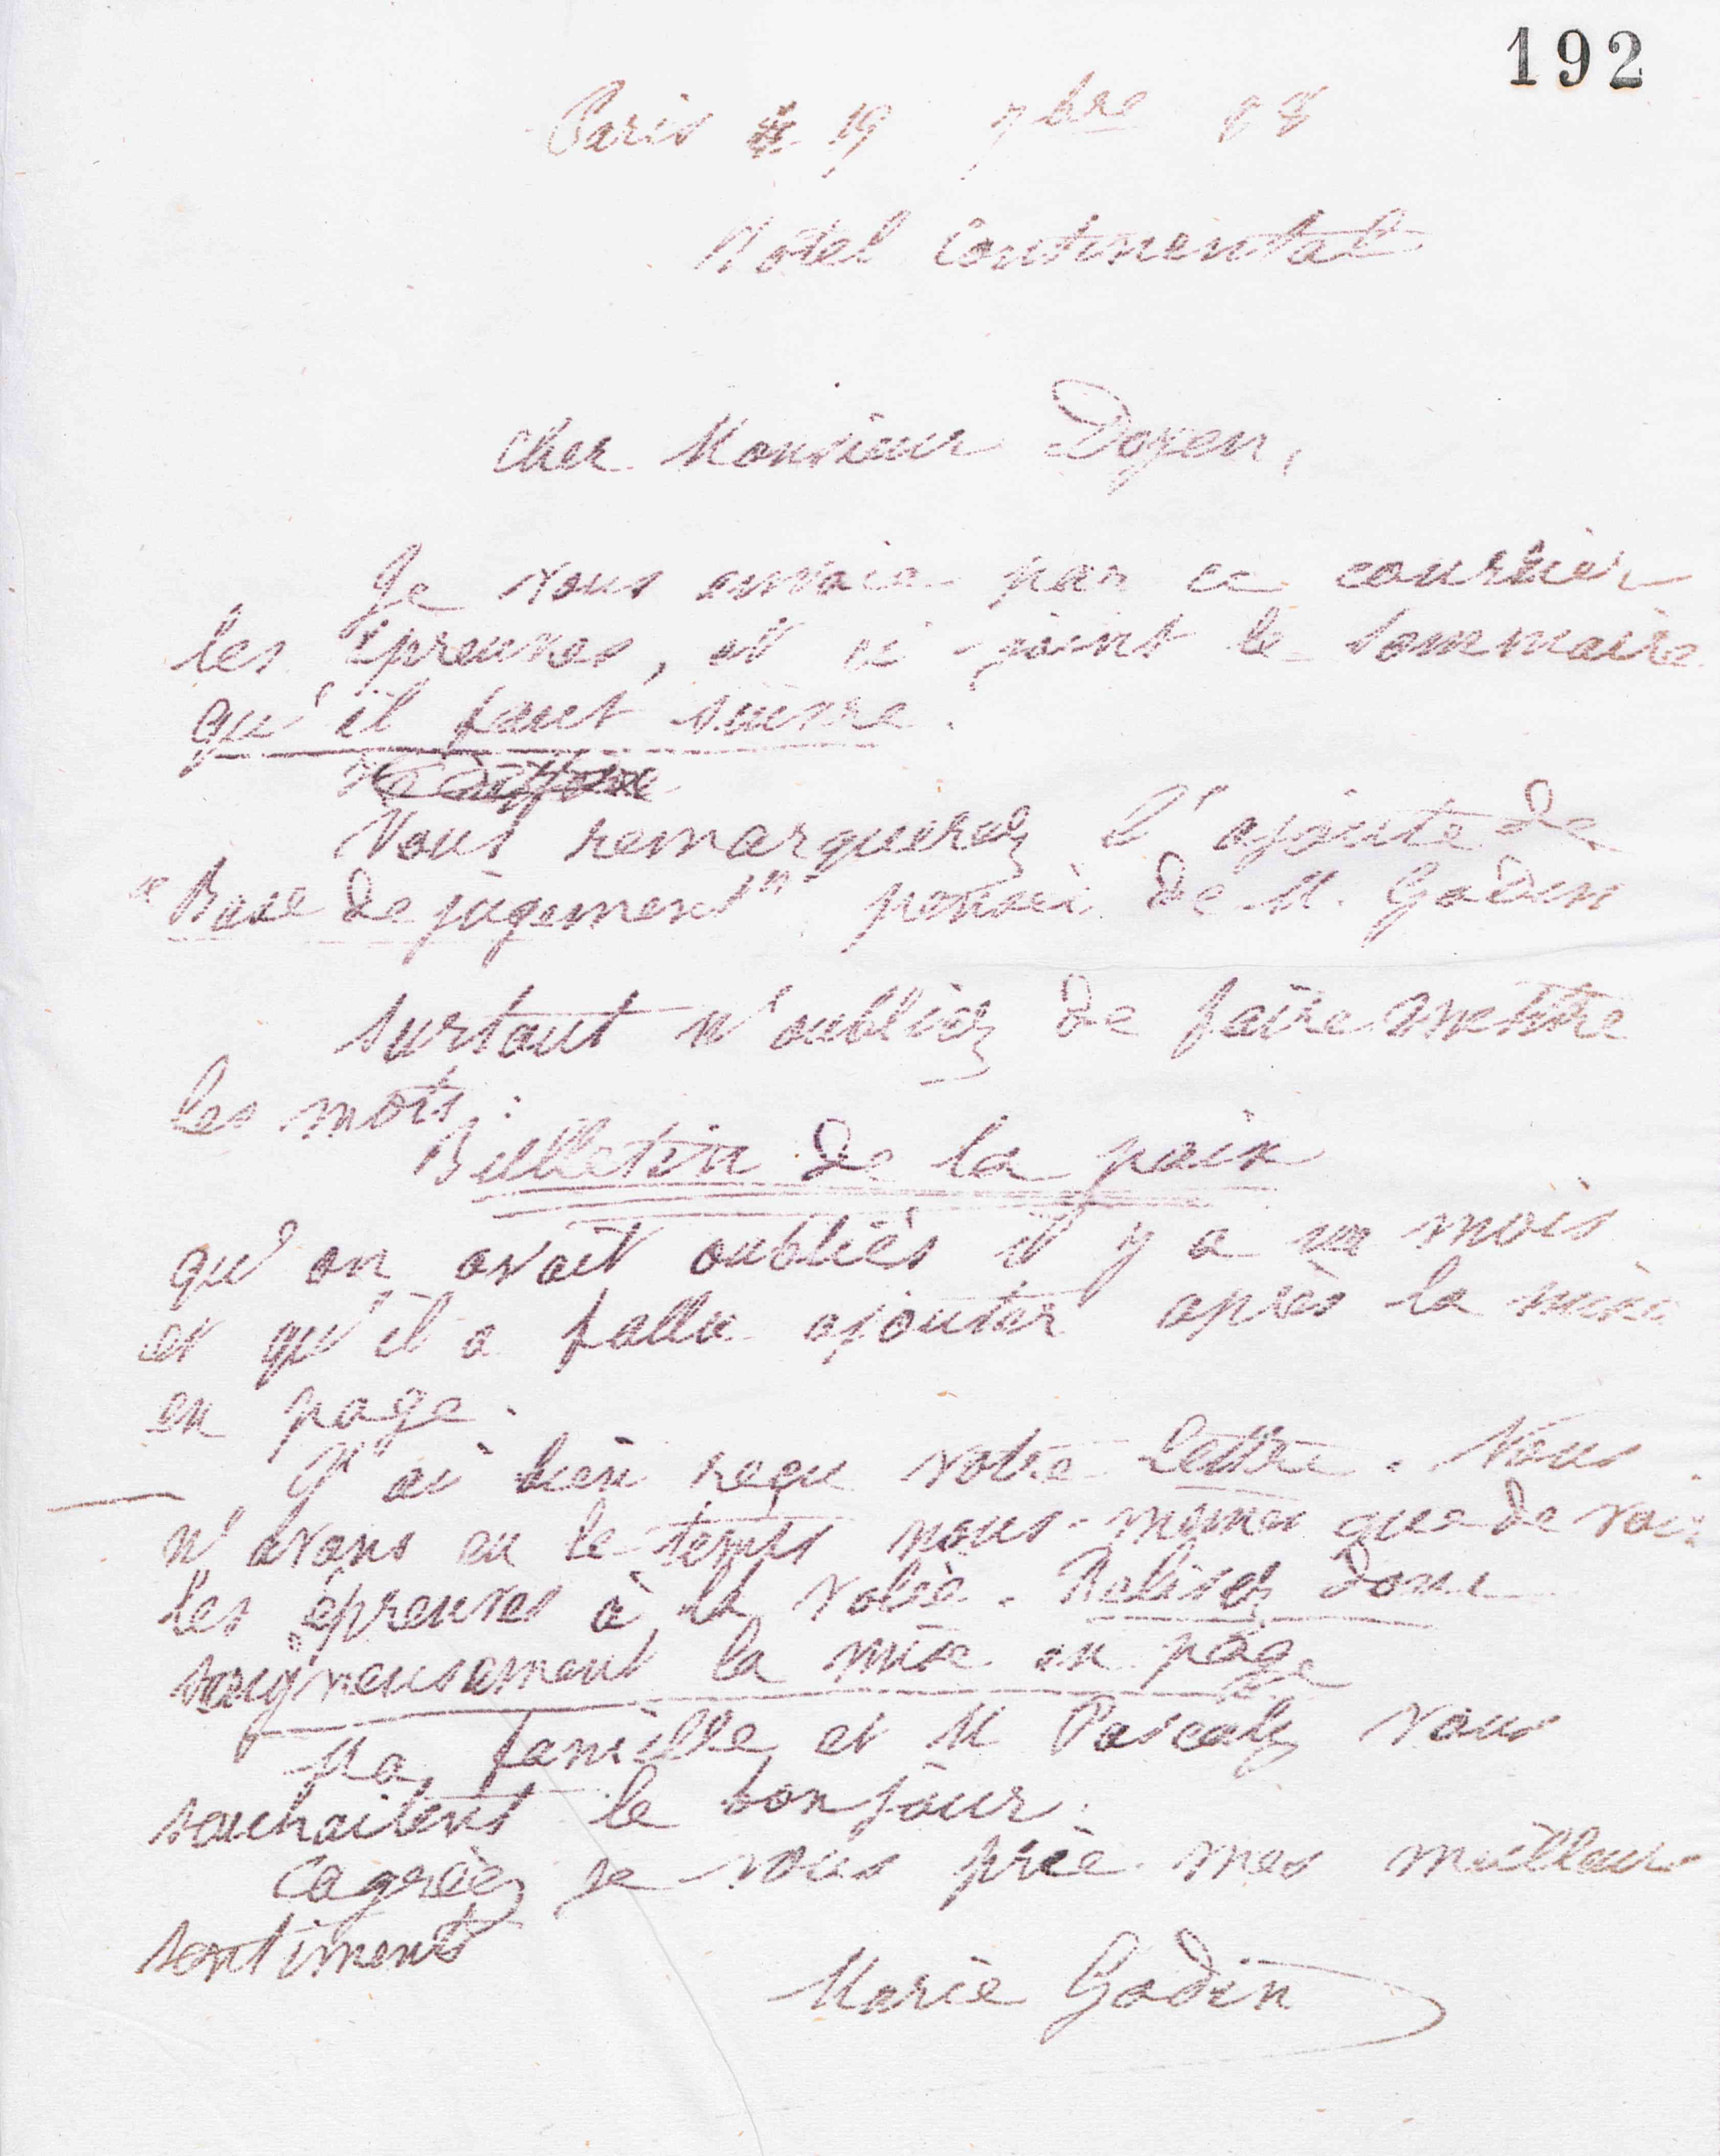 192
Paris le 19 7bre 88
Hôtel Continental
Cher Monsieur Doyen,
Je vous envoie par ce courrier
les épreuves, et ci-joint le sommaire
qu'il faut suivre.
Vous remarquerez l'ajoute de
"Base de jugement" pensée de M. Godin
Surtout n'oubliez de faire mettre
les mots :
Bulletin de la paix
qu'on avait oubliés il y a un mois
et qu'il a fallu ajouter après la mise
en page.
J'ai bien reçu votre lettre. Nous
n'avons eu le temps nous-mêmes que de voir
les épreuves à la volée. Relisez donc
soigneusement la mise en page
Ma famille et M Pascaly vous
souhaitent le bonjour.
Agréez je vous prie mes meilleurs
sentiments
Marie Godin